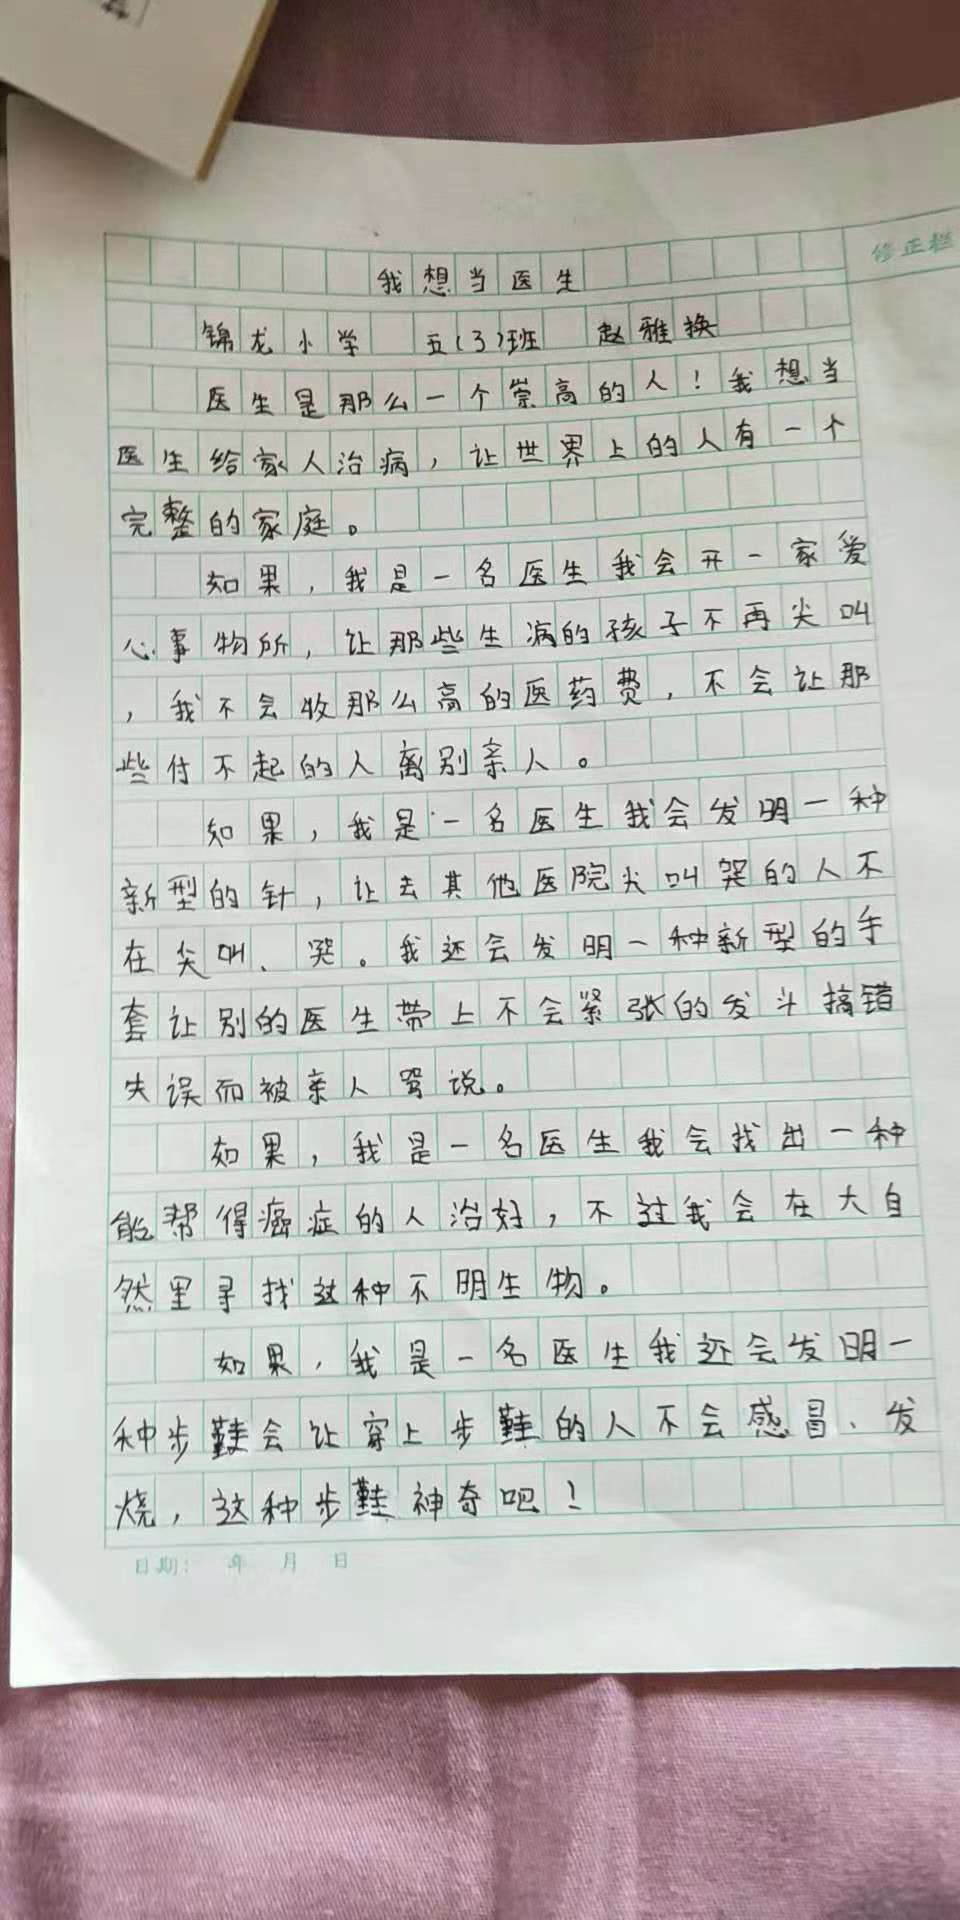 修正栏
我想当医生
锦龙小学 五(3)班 赵雅换
医生是那么一个崇高的人！我想当
医生给家人治病，让世界上的人有一个
完整的家庭。
如果，我是一名医生我会开一家爱
心事物所，让那些生病的孩子不再尖叫
，我不会收那么高的医药费，不会让那
些付不起的人离别亲人。
如果，我是一名医生我会发明一种
新型的针，让去其他医院尖叫哭的人不
在尖叫、哭。我还会发明一种新型的手
套让别的医生带上不会紧张的发斗搞错
失误而被亲人骂说。
如果，我是一名医生我会找出一种
能帮得癌症的人治好，不过我会在大自
然里寻找这种不明生物。
如果，我是一名医生我还会发明一
种步鞋会让穿上步鞋的人不会感冒、发
烧，这种步鞋神奇吧！
日期： 年 月 日